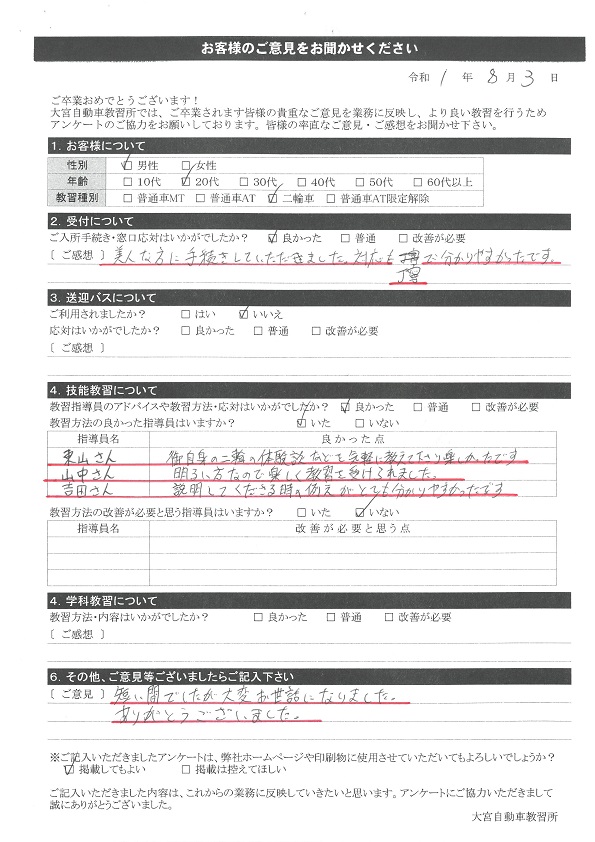 お客様のご意見をお聞かせください
令和 1 年 8 月 3 日
ご卒業おめでとうございます！
大宮自動車教習所では、ご卒業されます皆様の貴重なご意見を業務に反映し、より良い教習を行うため
アンケートのご協力をお願いしております。皆様の率直なご意見・ご感想をお聞かせ下さい。
1. お客様について
性別 ☑男性 □女性
年齢 □10代 ☑20代 □30代 □40代 □50代 □60代以上
教習種別 □普通車MT □普通車AT ☑二輪車 □普通車AT限定解除
2. 受付について
ご入所手続き・窓口応対はいかがでしたか？ ☑良かった □普通 □改善が必要
〔ご感想〕美人な方に手続きしていただきました。対応も 丁寧で分かりやすかったです。
3. 送迎バスについて
ご利用されましたか？ □はい ☑いいえ
応対はいかがでしたか？ □良かった □普通 □改善が必要
〔ご感想〕
4. 技能教習について
教習指導員のアドバイスや教習方法・応対はいかがでしたか？ ☑良かった □普通 □改善が必要
教習方法の良かった指導員はいますか？ ☑いた □いない
指導員名 良かった点
東山さん 御自身の二輪の体験談などを気軽に教えて下さり楽しかったです
山中さん 明るい方なので楽しく教習を受けられました。
吉田さん 説明してくださる時の例えがとても分かりやすかったです
教習方法の改善が必要と思う指導員はいますか？ □いた ☑いない
指導員名 改善が必要と思う点
4. 学科教習について
教習方法・内容はいかがでしたか？ □良かった □普通 □改善が必要
〔ご感想〕
6. その他、ご意見等ございましたらご記入下さい
〔ご意見〕短い間でしたが大変お世話になりました。
ありがとうございました。
※ご記入いただきましたアンケートは、弊社ホームページや印刷物に使用させていただいてもよろしいでしょうか？
☑掲載してもよい □掲載は控えてほしい
ご記入いただきました内容は、これからの業務に反映していきたいと思います。アンケートにご協力いただきまして
誠にありがとうございました。
大宮自動車教習所